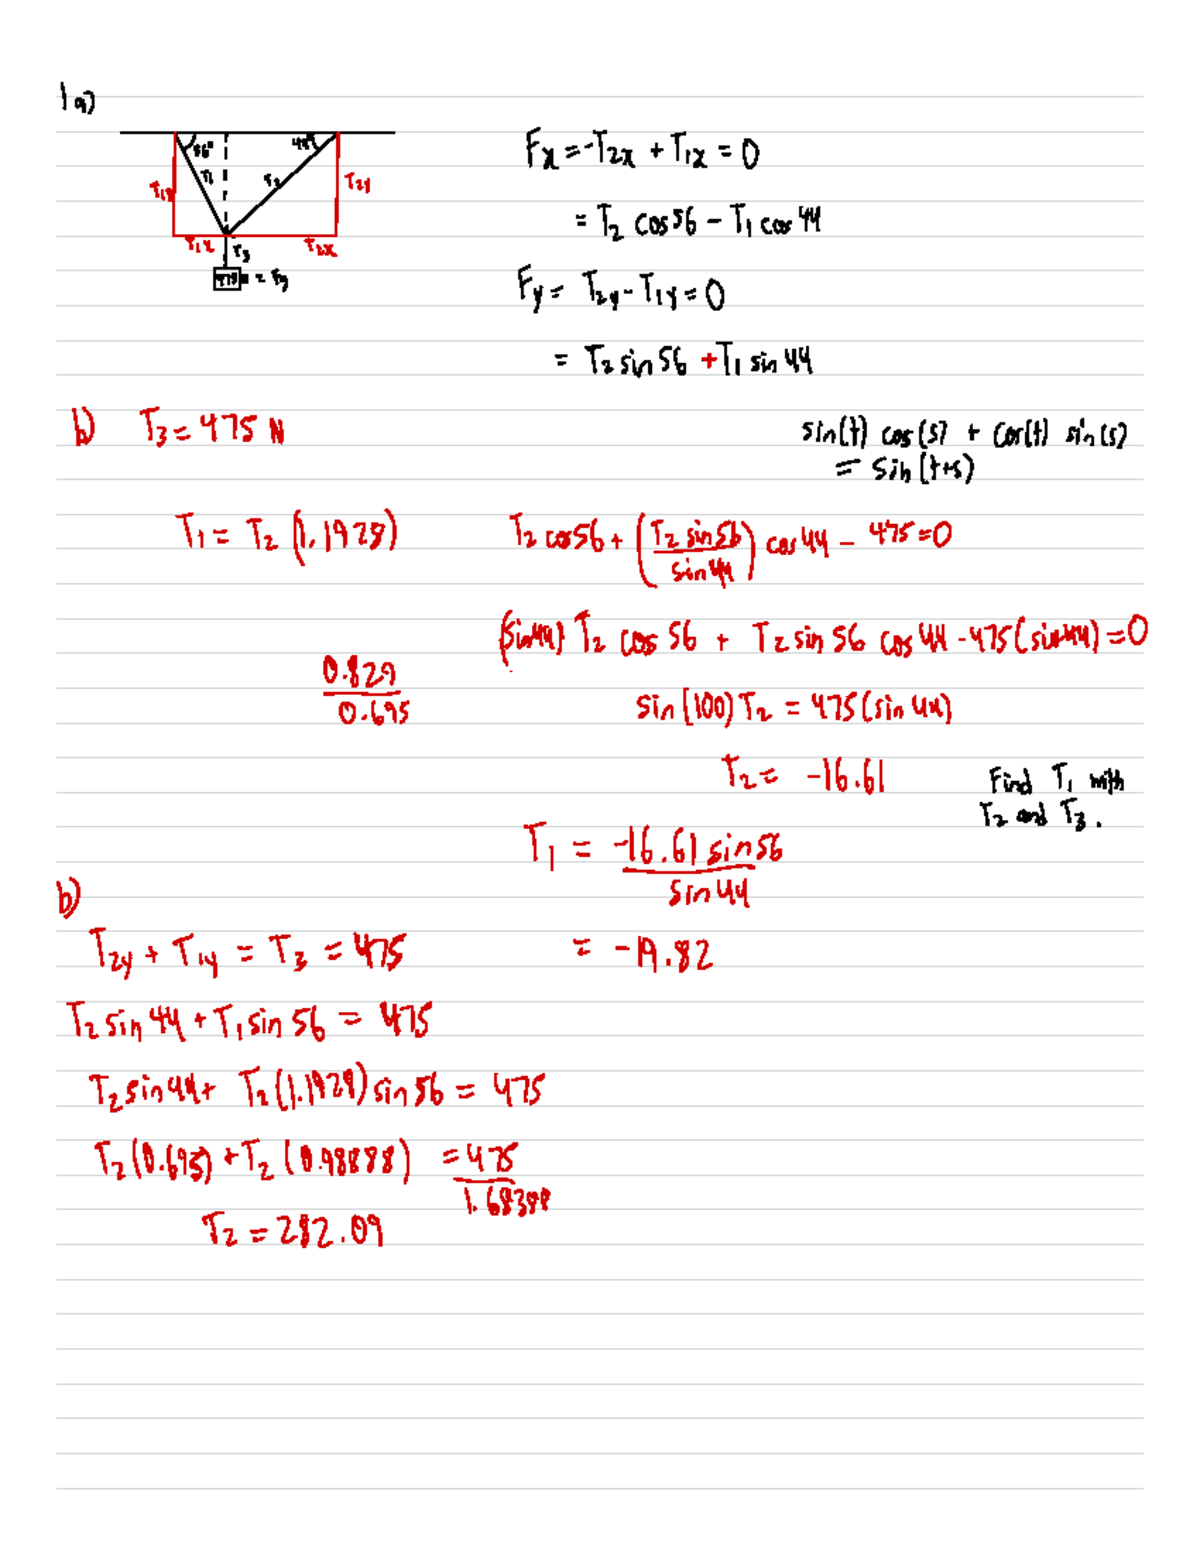 1a)
56°
44°
T1
T2
T1y
T2y
T1x
T3
T2x
475 N = Fg
Fx = -T2x + T1x = 0
= T2 cos56 - T1 cos 44
Fy = T2y - T1y = 0
= T2 sin 56 + T1 sin 44
b) T3 = 475 N
sin(t) cos(s) + cos(t) sin(s)
= sin(t+s)
T1 = T2 (1.1928)
T2 cos56 + (T2 sin56 / sin44) cos 44 - 475 = 0
(sin44) T2 cos 56 + T2 sin 56 cos 44 - 475(sin44) = 0
0.829
0.695
sin(100) T2 = 475(sin 44)
T2 = -16.61
Find T1 with
T2 and T3.
T1 = -16.61 sin56
sin 44
= -19.82
b)
T2y + T1y = T3 = 475
T2 sin 44 + T1 sin 56 = 475
T2 sin44 + T2(1.1928) sin 56 = 475
T2(0.695) + T2(0.98888) = 475
1.68388
T2 = 282.09